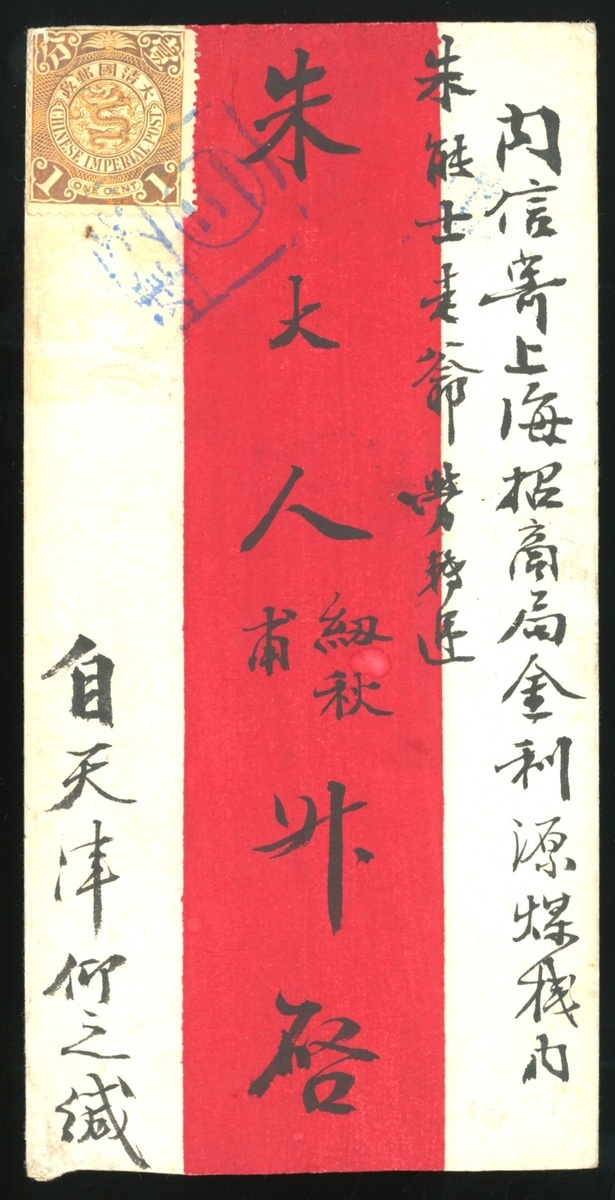 內信寄上海招商局金利源煤棧內
朱能士老爺勞轉送
朱大人
紉秋
甫
升啓
自天津仰之緘
大清國郵政
壹分
CHINESE IMPERIAL POST
1 ONE CENT 1